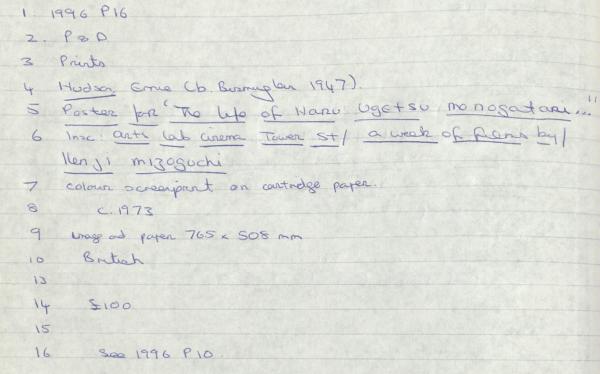 1 1996 P16
2. P & D
3 Prints
4 Hudson Ernie (b. Birmingham 1947).
5 Poster for 'The life of Haru Ugetsu monogatari..."
6 Insc: arts lab cinema Tower St/ a week of films by/
Kenji mizoguchi
7 colour screenprint on cartridge paper.
8 c.1973
9 image and paper 765 x 508 mm
10 British
13
14 £100
15
16 See 1996 P10